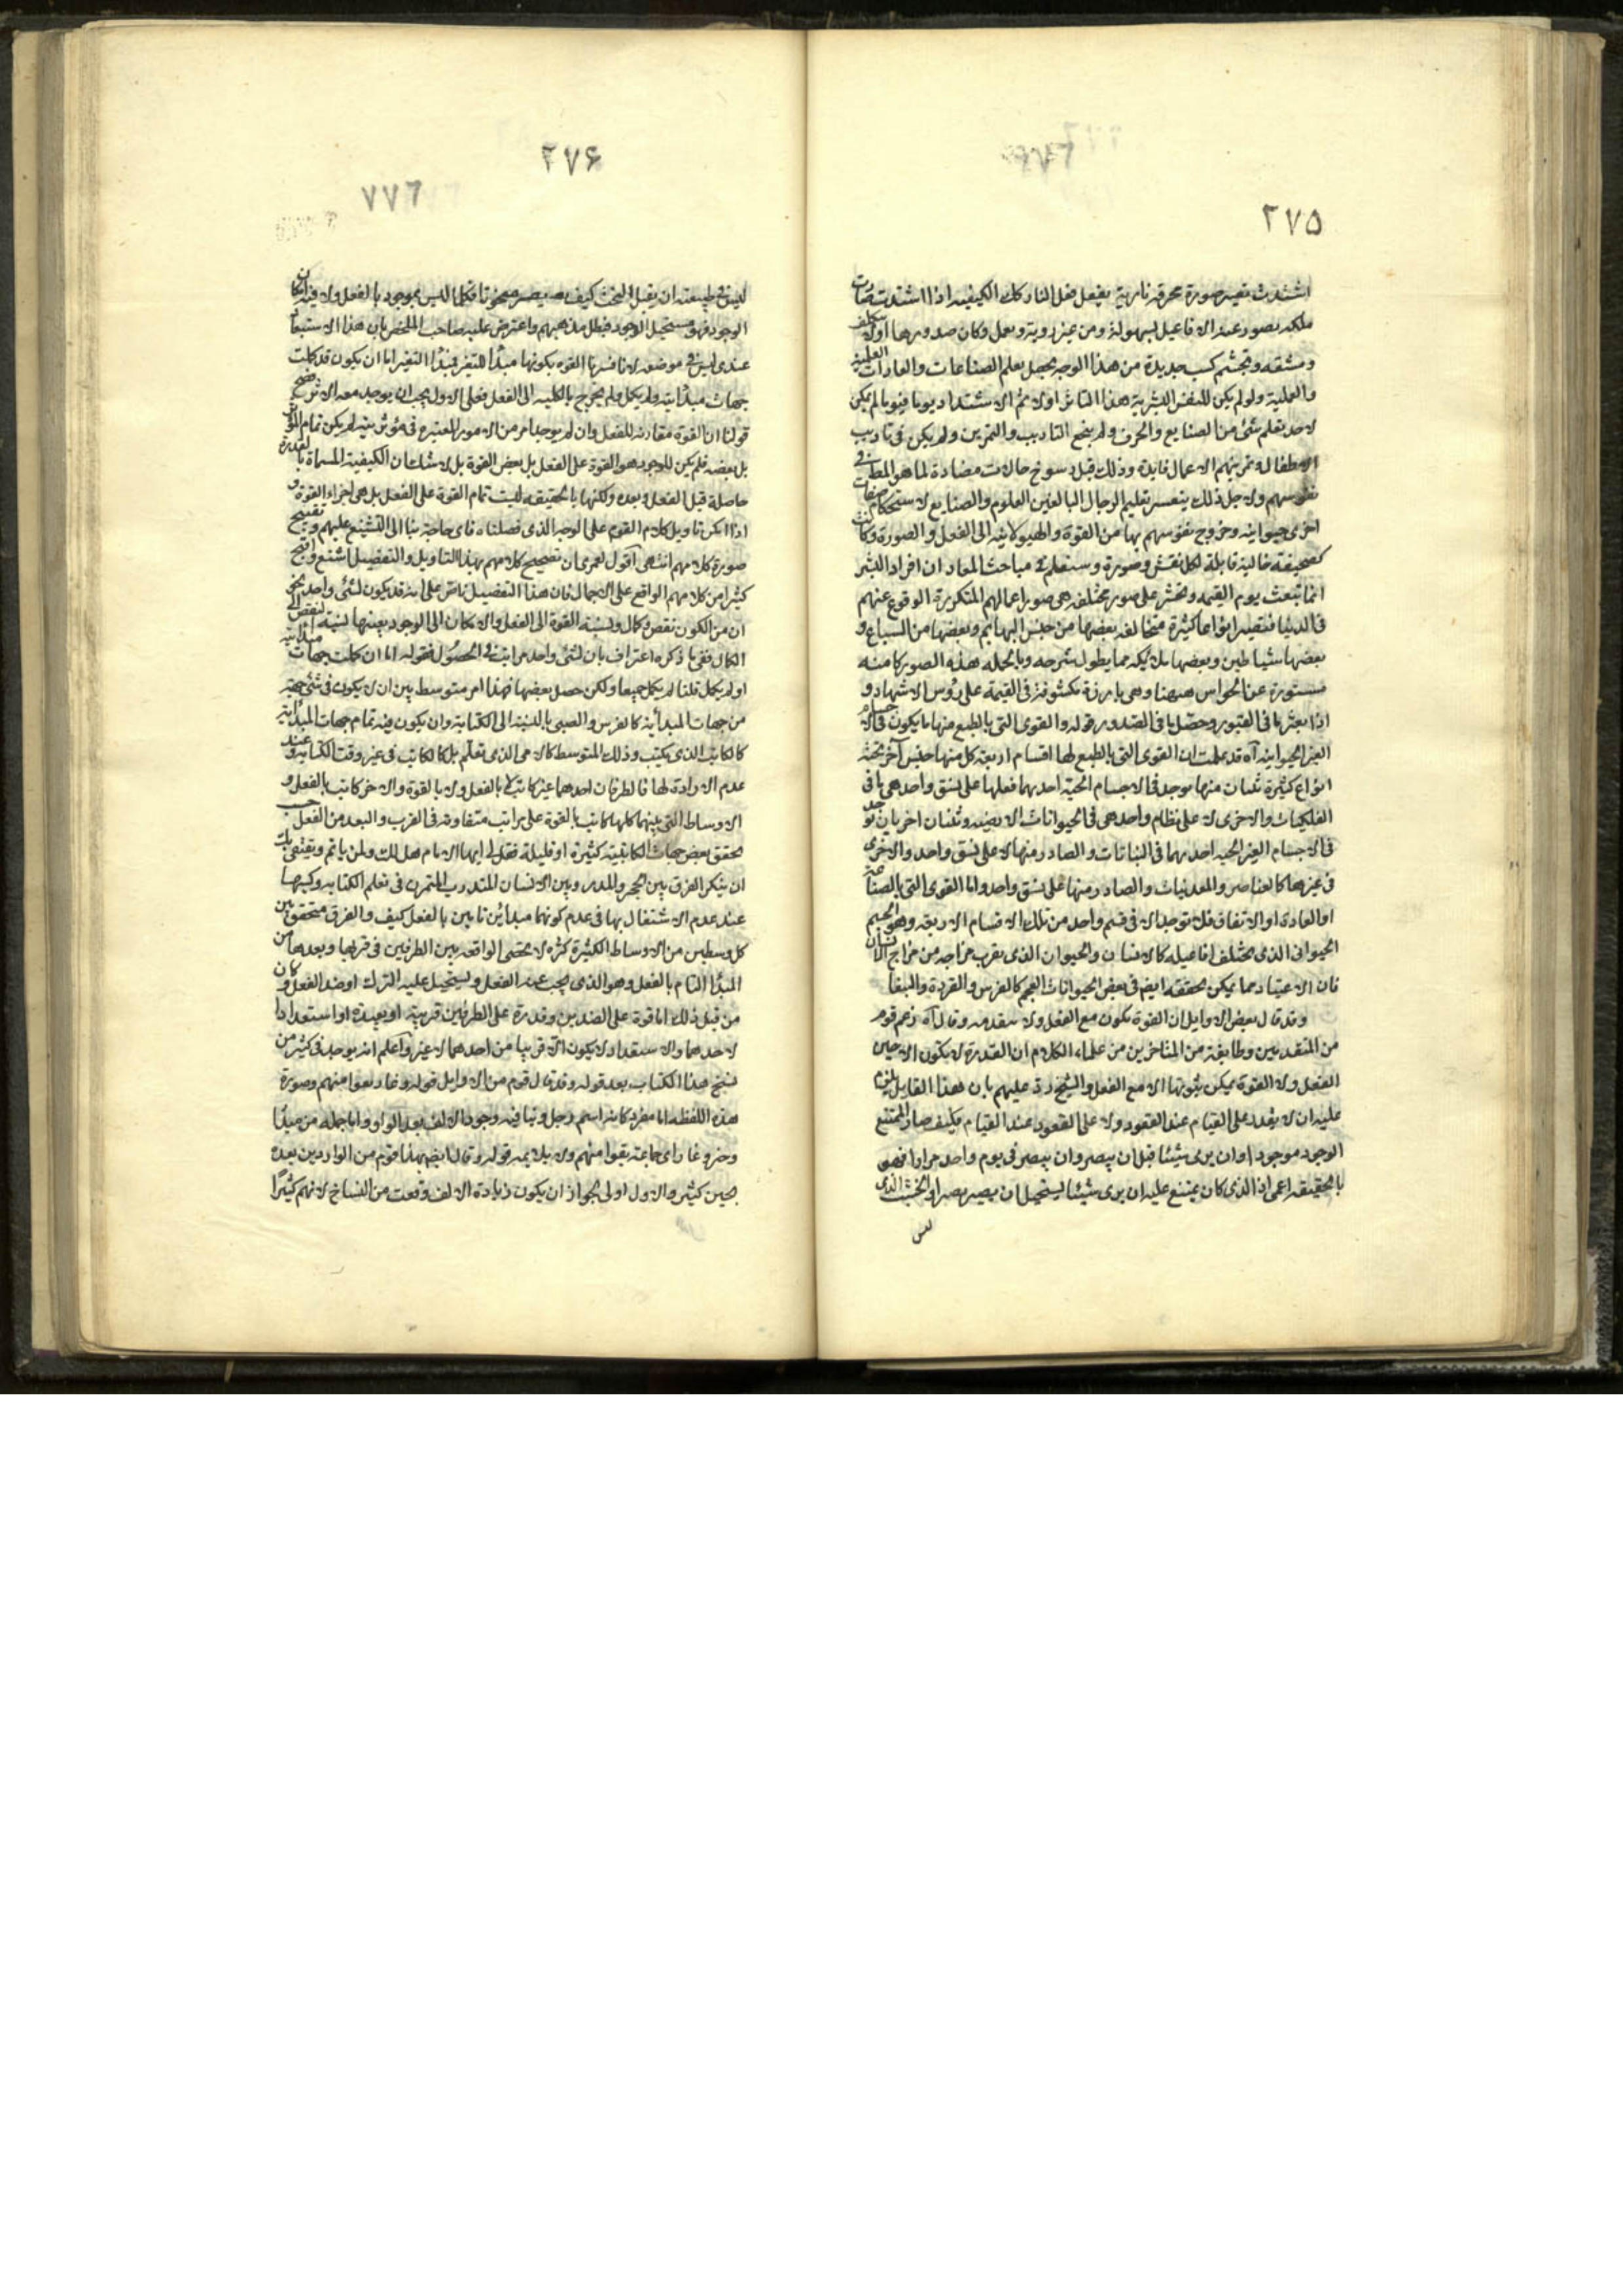 ٢٧۵
اشتدت تصير صورة محرقة نارية يفعل فعل النار كك الكيفية اذا اشتدت صارت
ملكه يصدر عنه الافاعيل بسهولة ومن غير روية وتعمل وكان صدورها اولا بتكلف
ومشقه وتجشم كسب جديدة من هذا الوجه يحصل تعلم الصناعات والعادات العلمية
والعملية ولو لم يكن للنفس البشرية هذا التاثر اولا ثم الاشتداد يوما فيوما لم يكن
لاحد تعلم شئ من الصنايع والحرف ولم ينجع التاديب والتمرين ولم يكن في تاديب
الاطفال وتمرينهم الاعمال فايدة وذلك قبل رسوخ حالات مضادة لما هو المطـ في
نفوسهم ولاجل ذلك يتعسر تعليم الرجال البالغين العلوم والصنايع لاستحكام صفات
اخرى حيوانية وخروج نفوسهم بها من القوة والهيولانية الى الفعل والصورة وكانت
كصحيفة خالية قابلة لكل نقش وصورة وستعلم في مباحث المعاد ان افراد البشر
انما تبعث يوم القيمه وتحشر على صور مختلفه هي صور اعمالهم المتكررة الوقوع عنهم
في الدنيا فتصير انواعا كثيرة متخالفه بعضها من جنس البهايم وبعضها من السباع و
بعضها شياطين وبعضها ملائكه مما يطول شرحه وبالجمله هذه الصور كامنه
مستورة عن الحواس ههنا وهي بارزة مكشوفة في القيمة على رؤس الاشهاد و
اذا بعثر ما في القبور وحصل ما في الصدور قوله والقوى التي بالطبع منها ما يكون في الاجسام
الغير الحيوانية آه قد علمت ان القوى التي بالطبع لها اقسام اربعة كل منها جنس آخر تحته
انواع كثيرة ثنتان منها موجد في الاجسام الحية احديهما فعلها على نسق واحد هي ما في
الفلكيات والاخرى لا على نظام واحد هي في الحيوانات الارضيه وثنتان اخريان توجد
في الاجسام الغير الحيه احديهما في النباتات والصادر منها لا على نسق واحد والاخرى
في غيرها كالعناصر والمعدنيات والصادر منها على نسق واحد واما القوى التي بالصناعة
او العادة او الاتفاق فلا توجد الا في قسم واحد من تلك الاقسام الاربعه وهو الجسم
الحيواني الذي يختلف افاعيله كالانسان والحيوان الذي يقرب مزاجه من مزاج الانسان
فان الاعتياد مما يمكن تحققه ايضم في بعض الحيوانات العجم كالفرس والقردة والببغا
وقد قال بعض الاوايل ان القوة تكون مع الفعل ولا يتقدمه وقال آه زعم قوم
من المتقدمين وطايفة من المتاخرين من علماء الكلام ان القدرة لا يكون الا حين
الفعل ولا القوة يمكن ثبوتها الا مع الفعل والشيخ رد عليهم بان هذا القايل يلزم
عليه ان لا يقدر على القيام عند القعود ولا على القعود عند القيام فكيف صار الممتنع
الوجود موجودا وان يرى شيئا قبل ان يبصر وان يبصر في يوم واحد مرارا فهو
بالحقيقه اعمى اذ الذي كان يمتنع عليه ان يرى شيئا يستحيل ان يصير مبصرا والخشب الذي
ليس
٢٧۶
٧٧٦
ليس في طبيعته ان يقبل النحت كيف يصير منحوتا فكلما ليس بموجود بالفعل ولا فيه امكان
الوجود فهو مستحيل الوجود فبطل مذهبهم واعترض عليه صاحب الملخص بان هذا الاستبعاد
عندي ليس في موضعه لانا فسرنا القوه بكونها مبدأ للتغير فمبدأ التغير اما ان يكون قد كملت
جهات مبدأيته ولم يكمل ولم يخرج بالكليه الى الفعل فعلى الاول يجب ان يوجد معه الاثر فصح
قولنا ان القوة مقارنة للفعل وان لم يوجد امر من الامور المعتبره في مؤثريته لم يكن تمام المؤثر
بل بعضه فلم يكن الموجود هو القوة على الفعل بل بعض القوة بل لا شك ان الكيفية المسماة بالقدرة
حاصلة قبل الفعل وبعده ولكنها بالحقيقه ليست تمام القوة على الفعل بل هي احد اجزاء القوة و
اذا امكن تاويل كلام القوم على الوجه الذي فصلناه فاي حاجة بنا الى التشنيع عليهم وتقبيح
صورة كلامهم انتهى اقول لعمري ان تصحيح كلامهم بهذا التاويل والتفصيل اشنع واقبح
كثيرا من كلامهم الواقع على الاجمال فان هذا التفصيل ناص على انه قد يكون لشئ واحد نحو
ان من الكون نقص وكمال ونسبة القوة الى الفعل والامكان الى الوجود بعينها نسبة النقص الى
الكمال ففي ما ذكره اعتراف بان لشئ واحد مراتب في الحصول فقوله اما ان كملت جهات مبدأيته
او لم يكمل قلنا لم يكمل جميعا ولكن حصل بعضها فهذا امر متوسط بين ان لا يكون في شئ جهة
من جهات المبدأية كالفرس والصبي بالنسبة الى الكتابة وان يكون فيه تمام جهات المبدأية
كالكاتب الذي يكتب وذلك المتوسط كالامي الذي تعلم بل كالكاتب في غير وقت الكتابة وعند
عدم الارادة لها فالطرفان احدهما غير كاتب لا بالفعل ولا بالقوة والاخر كاتب بالفعل و
الاوساط التي بينهما كلها كاتب بالقوة على مراتب متفاوتة في القرب والبعد من الفعل حسب
تحقق بعض جهات الكاتبية كثيرة او قليلة فقل لي ايها الامام هل لك ولمن ياتم ويقتفي بك
ان ينكر الفرق بين الحجر والمدر وبين الانسان المتدرب المتمرن في تعلم الكتابه وكسبها
عند عدم الاشتغال بها في عدم كونهما مبدأين تامين بالفعل كيف والفرق متحقق بين
كل وسطين من الاوساط الكثيرة كثرة لا تحصى الواقعه بين الطرفين في قربها وبعدها من
المبدأ التام بالفعل وهو الذي يجب عنه الفعل ويستحيل عليه الترك او ضد الفعل وكان
من قبل ذلك اما قوة على الضدين وقدرة على الطرفين قريبة او بعيدة او استعدادا
لاحدهما والاستعداد لا يكون الا قريبا من احدهما لا غير واعلم انه يوجد في كثير من
نسخ هذا الكتاب بعد قوله وقد قال قوم من الاوايل قوله وغاريعوا منهم وصورة
هذه اللفظه اما مفرد كانه اسم رجل وينافيه وجود الالف بعد الواو واما جمله من مبدأ
وخبر وغا راى جماعة بقوا منهم ولا يلايمه قوله وقال ايضم بهذا قوم من الواردين بعده
بحين كثير والاول اولى لجواز ان يكون زيادة الالف وقعت من النساخ لانهم كثيرا